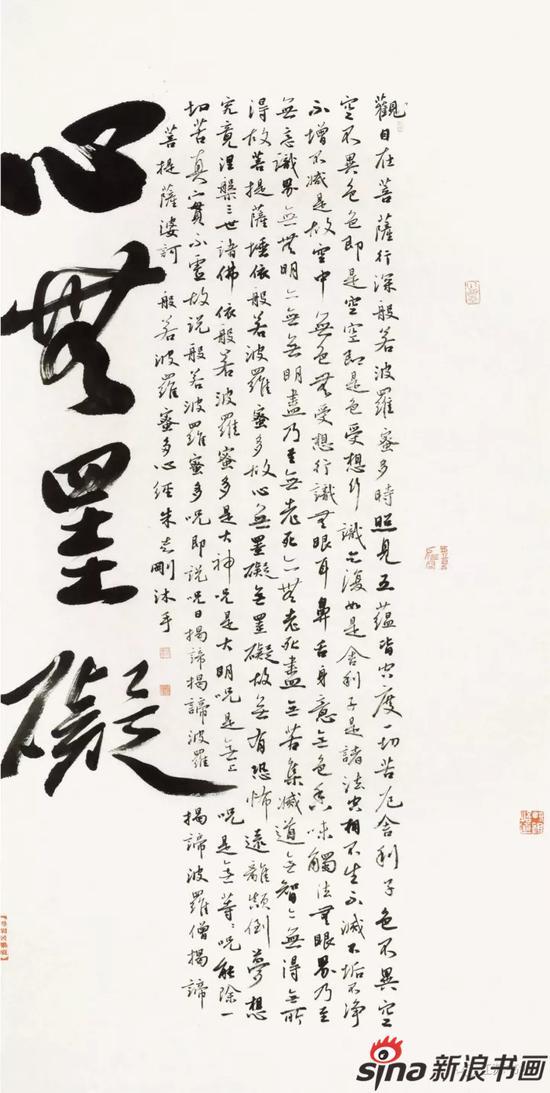 觀自在菩薩行深般若波羅蜜多時照見五蘊皆空度一切苦厄舍利子色不異空
空不異色色即是空空即是色受想行識亦復如是舍利子是諸法空相不生不滅不垢不淨
不增不減是故空中無色無受想行識無眼耳鼻舌身意無色香味觸法無眼界乃至
無意識界無無明亦無無明盡乃至無老死亦無老死盡無苦集滅道無智亦無得無所
得故菩提薩埵依般若波羅蜜多故心無罣礙無罣礙故無有恐怖遠離顛倒夢想
究竟涅槃三世諸佛依般若波羅蜜多是大神咒是大明咒是無上咒是無等等咒能除一
切苦真實不虛故說般若波羅蜜多咒即說咒曰揭諦揭諦波羅揭諦波羅僧揭諦
菩提薩婆訶 般若波羅蜜多心經朱志剛沐手
心無罣礙
sina新浪书画